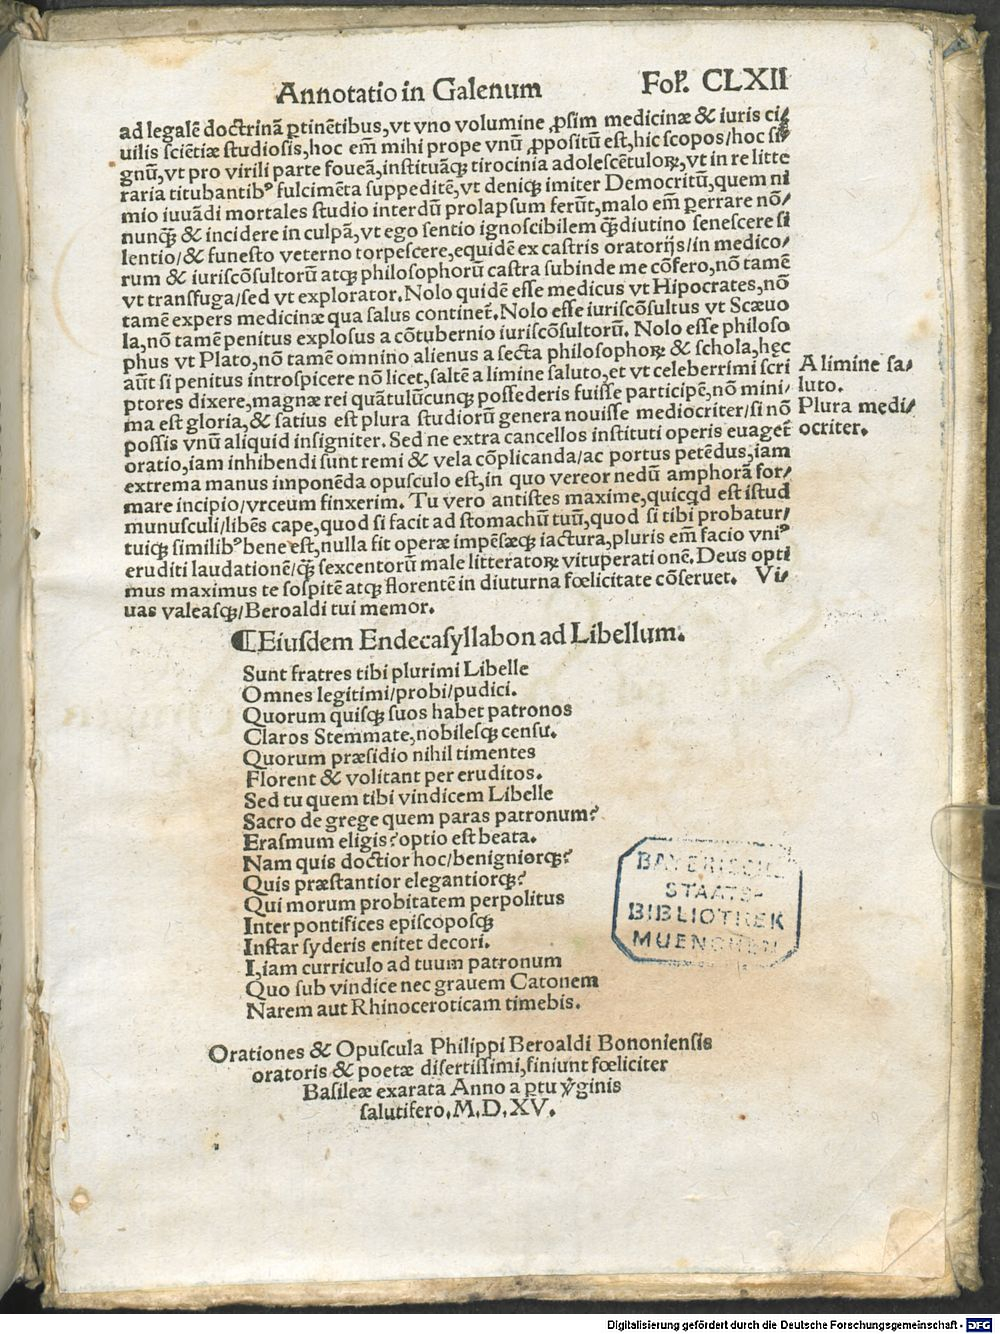 Annotatio in Galenum Fol. CLXII
ad legalē doctrinā ꝑtinētibus,vt vno volumine ꝓsim medicinæ & iuris ci/
uilis sciētiæ studiosis,hoc em̄ mihi prope vnū ꝓpositū est,hic scopos/hoc si/
gnū,vt pro virili parte foueā,instituāqꝫ tirocinia adolescētuloꝝ,vt in re litte
raria titubantibꝰ fulcimēta suppeditē,vt deniqꝫ imiter Democritū,quem ni
mio iuuādi mortales studio interdū prolapsum ferūt,malo em̄ ꝑerrare nō/
nunqꝫ̄ & incidere in culpā,vt ego sentio ignoscibilem qꝫ̄ diutino senescere si
lentio/& funesto veterno torpescere,equidē ex castris oratorijs/in medico/
rum & iuriscōsultorū atqꝫ philosophorū castra subinde me cōfero,nō tamē
vt transfuga/sed vt explorator.Nolo quidē esse medicus vt Hipocrates,nō
tamē expers medicinæ qua salus continet̄.Nolo esse iuriscōsultus vt Scæuo
la,nō tamē penitus explosus a cōtubernio iuriscōsultorū. Nolo esse philoso
phus vt Plato,nō tamē omnino alienus a secta philosophoꝝ & schola,hęc
aūt si penitus introspicere nō licet,saltē a limine saluto,et vt celeberrimi scri
ptores dixere,magnæ rei quātulūcunqꝫ possederis fuisse participē,nō mini/
ma est gloria,& satius est plura studiorū genera nouisse mediocriter/si nō
possis vnū aliquid insigniter. Sed ne extra cancellos instituti operis euaget̄
oratio,iam inhibendi sunt remi & vela cōplicanda/ac portus petēdus,iam
extrema manus imponēda opusculo est,in quo vereor nedū amphorā for/
mare incipio/vrceum finxerim. Tu vero antistes maxime,quicqd est istud
munusculi/libēs cape,quod si facit ad stomachū tuū,quod si tibi probatur/
tuiqꝫ similibꝰ bene est,nulla fit operæ impēsæqꝫ iactura,pluris em̄ facio vniꝰ
eruditi laudationē/qꝫ̄ sexcentorū male litteratoꝝ vituperationē.Deus opti
mus maximus te sospitē atqꝫ florentē in diuturna fœlicitate cōseruet. Vi/
uas valeasqꝫ/Beroaldi tui memor.
A limine sa/
luto.
Plura medi/
ocriter.
¶Eiusdem Endecasyllabon ad Libellum.
Sunt fratres tibi plurimi Libelle
Omnes legitimi/probi/pudici.
Quorum quisqꝫ suos habet patronos
Claros Stemmate,nobilesqꝫ censu.
Quorum præsidio nihil timentes
Florent & volitant per eruditos.
Sed tu quem tibi vindicem Libelle
Sacro de grege quem paras patronum?
Erasmum eligis?optio est beata.
Nam quis doctior hoc/benigniorqꝫ?
Quis præstantior elegantiorqꝫ?
Qui morum probitatem perpolitus
Inter pontifices episcoposqꝫ
Instar syderis enitet decori.
I,iam curriculo ad tuum patronum
Quo sub vindice nec grauem Catonem
Narem aut Rhinoceroticam timebis.
BAYERISCHE
STAATS-
BIBLIOTHEK
MUENCHEN
Orationes & Opuscula Philippi Beroaldi Bononiensis
oratoris & poetæ disertissimi,finiunt fœliciter
Basileæ exarata Anno a ꝑtu v̄ginis
salutifero.M.D.XV.
Digitalisierung gefördert durch die Deutsche Forschungsgemeinschaft - DFG